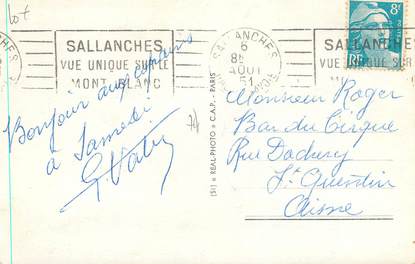 lot
SALLANCHES
VUE UNIQUE SUR LE
MONT-BLANC
SALLANCHES
6
AOUT
51
SALLANCHES
VUE UNIQUE SUR
MONT
8F
Bonjour aux copains
à Samedi
(51) « REAL-PHOTO » C.A.P. - PARIS
Monsieur Roger
Bar du Cirque
Rue Dachery
St Quentin
Aisne